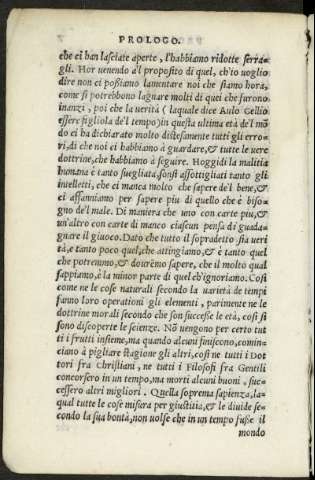 PROLOGO.
che ci han lasciate aperte, l'habbiamo ridotte serra-
gli. Hor uenendo al proposito di quel, ch'io uoglio
dire non ci possiamo lamentare noi che siamo hora,
come si potrebbono lagnare molti di quei che furono
inanzi, poi che la uerità (laquale dice Aulo Gellio
essere figliola de'l tempo) in questa ultima età de'l mõ
do ci ha dichiarato molto distesamente tutti gli erro-
ri, di che noi ci habbiamo à guardare, & tutte le uere
dottrine, che habbiamo à seguire. Hoggidi la malitia
humana è tanto suegliata, sonsi assottigliati tanto gli
intelletti, che ci manca molto che sapere de'l bene, &
ci affanniamo per sapere piu di quello che è biso-
gno de'l male. Di maniera che uno con carte piu, &
un'altro con carte di manco ciascun pensa di guada-
gnare il giuoco. Dato che tutto il sopradetto sia ueri
tà, e tanto poco quel, che attingiamo, & è tanto quel
che potremmo, & douremo sapere, che il molto qual
sappiamo, è la minor parte di quel ch'ignoriamo. Cosi
come ne le cose naturali secondo la uarietà de tempi
fanno loro operationi gli elementi, parimente ne le
dottrine morali secondo che son successe le età, cosi si
sono discoperte le scienze. Nõ uengono per certo tut
ti i frutti insieme, ma quando alcuni finiscono, comin-
ciano à pigliare stagione gli altri, cosi ne tutti i Dot
tori fra Christiani, ne tutti i Filosofi fra Gentili
concorsero in un tempo, ma morti alcuni buoni, suc-
cessero altri migliori. Quella soprema sapienza, la-
qual tutte le cose misura per giustitia, & le diuide se-
condo la sua bontà, non uolse che in un tempo fusse il
mondo